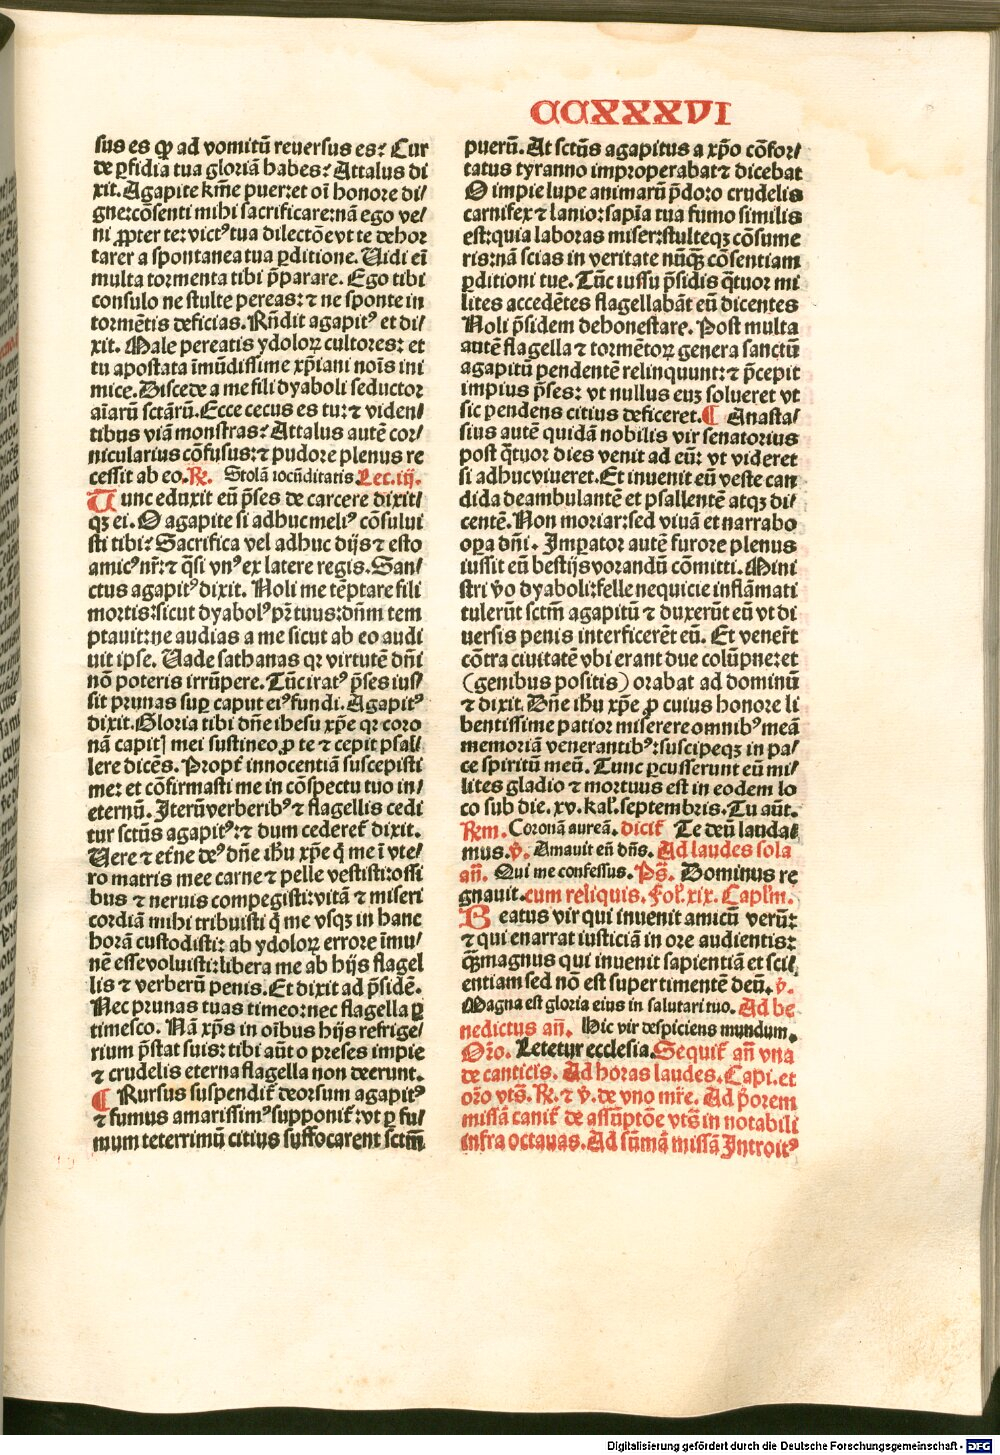 CCXXXVI
sus es qꝙ ad vomitū reuersus es? Cur
de ꝑfidia tua gloriā habes? Attalus di
xit. Agapite km̄e puer: et oī honore di/
gne: cōsenti mihi sacrificare: nā ego ve/
ni ꝓpter te: victꝰ tua dilectōe vt te dehor
tarer a spontanea tua ꝑditione. Uidi eī
multa tormenta tibi p̄parare. Ego tibi
consulo ne stulte pereas: ⁊ ne sponte in
tormētis deficias. Rn̄dit agapitꝰ et di/
xit. Male pereatis ydoloꝝ cultores: et
tu apostata īmūdissime xp̄iani noīs ini
mice. Discede a me fili dyaboli seductor
aīarū sctārū. Ecce cecus es tu: ⁊ viden/
tibus viā monstras? Attalus autē cor/
nicularius cōfusus: ⁊ pudore plenus re
cessit ab eo. R̄. Stolā iocūditatis. Lec. iij.
Tunc eduxit eū p̄ses de carcere dixit/
qꝫ ei. O agapite si adhuc meliꝰ cōsului
sti tibi? Sacrifica vel adhuc dijs ⁊ esto
amicꝰ nr̄: ⁊ q̄si vnꝰ ex latere regis. San/
ctus agapitꝰ dixit. Noli me tēptare fili
mortis: sicut dyabolꝰ pr̄ tuus: dn̄m tem
ptauit: ne audias a me sicut ab eo audi
uit ipse. Uade sathanas qꝛ virtutē dn̄i
nō poteris irrūpere. Tūc iratꝰ p̄ses ius/
sit prunas suꝑ caput eiꝰ fundi. Agapitꝰ
dixit. Gloria tibi dn̄e ihesu xp̄e qꝛ coro
nā capitꝭ mei sustineo ꝓ te ⁊ cepit psal/
lere dicēs. Propt̄ innocentiā suscepisti
me: et cōfirmasti me in cōspectu tuo in/
eternū. Iterū verberibꝰ ⁊ flagellis cedi
tur sctūs agapitꝰ: ⁊ dum cederet̄ dixit.
Uere ⁊ et̄ne deꝰ dn̄e ih̄u xp̄e q̄ me ī vte/
ro matris mee carne ⁊ pelle vestisti: ossi
bus ⁊ neruis compegisti: vitā ⁊ miseri
cordiā mihi tribuisti q̄ me vsqꝫ in hanc
horā custodisti: ab ydoloꝝ errore īmu/
nē esse voluisti: libera me ab hijs flagel
lis ⁊ verberū penis. Et dixit ad p̄sidē.
Nec prunas tuas timeo: nec flagella ꝑ
timesco. Nā xp̄s in oībus hijs refrige/
rium p̄stat suis: tibi aūt o preses impie
⁊ crudelis eterna flagella non deerunt.
¶ Rursus suspendit̄ deorsum agapitꝰ
⁊ fumus amarissimꝰ supponit̄: vt ꝑ fu/
mum teterrimū citius suffocarent sctm̄
puerū. At sctūs agapitus a xp̄o cōfor/
tatus tyranno improperabat ⁊ dicebat
O impie lupe animarū p̄do: o crudelis
carnifex ⁊ lanio: sapīa tua fumo similis
est: quia laboras miser: stulteqꝫ cōsume
ris: nā scias in veritate nūqꝫ̄ cōsentiam
ꝑditioni tue. Tūc iussu p̄sidis q̄tuor mi
lites accedētes flagellabāt eū dicentes
Noli p̄sidem dehonestare. Post multa
autē flagella ⁊ tormētoꝝ genera sanctū
agapitū pendentē relinquunt: ⁊ p̄cepit
impius p̄ses: vt nullus euꝫ solueret vt
sic pendens citius deficeret. ¶ Anasta/
sius autē quidā nobilis vir senatorius
post q̄tuor dies venit ad eū: vt videret
si adhuc viueret. Et inuenit eū veste can
dida deambulantē et psallentē atqꝫ di/
centē. Non moriar: sed viuā et narrabo
oꝑa dn̄i. Imꝑator autē furore plenus
iussit eū bestijs vorandū cōmitti. Mini
stri v̄o dyaboli: felle nequicie inflāmati
tulerūt sctm̄ agapitū ⁊ duxerūt eū vt di
uersis penis interficerēt eū. Et venerūt
cōtra ciuitatē vbi erant due colūpne: et
(genibus positis) orabat ad dominū
⁊ dixit. Dn̄e ih̄u xp̄e ꝓ cuius honore li
bentissime patior miserere omnibꝰ meā
memoriā venerantibꝰ: suscipeqꝫ in pa/
ce spiritū meū. Tunc ꝑcusserunt eū mi/
lites gladio ⁊ mortuus est in eodem lo
co sub die. xv. kal̄. septembris. Tu aūt.
R̄m. Coronā aureā. dicit̄ Te deū lauda/
mus. v̄. Amauit eū dn̄s. Ad laudes sola
an̄. Qui me confessus. Ps̄. Dominus re
gnauit. cum reliquis. Fol̄. xix. Caplm̄.
Beatus vir qui inuenit amicū verū:
⁊ qui enarrat iusticiā in ore audientis:
qꝫ̄ magnus qui inuenit sapientiā et sci/
entiam sed nō est super timentē deū. v̄.
Magna est gloria eius in salutari tuo. Ad be
nedictus an̄. Hic vir despiciens mundum.
Or̄o. Letetur ecclesia. Sequit̄ an̄ vna
de canticis. Ad horas laudes. Capi. et
or̄o vts̄. R̄. ⁊ v̄. de vno mr̄e. Ad p̄orem
missā canit̄ de assūptōe vts̄ in notabili
infra octauas. Ad sūmā missā Introitꝰ
Digitalisierung gefördert durch die Deutsche Forschungsgemeinschaft - DFG